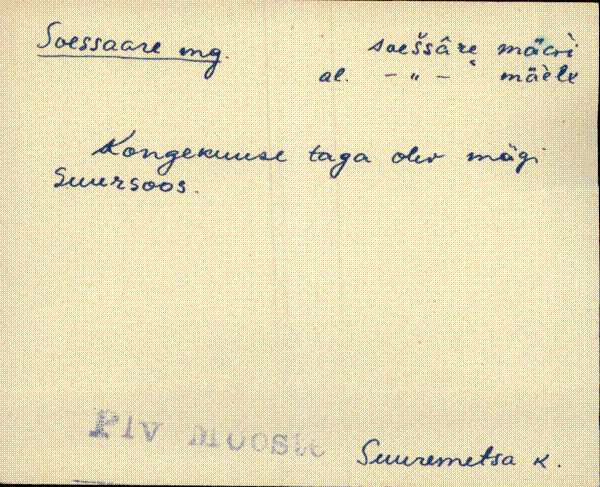 Soessaare mg. soeššâre mäɢi
al. – " – mäèlε
Kongekuuse taga olev mägi
Suursoos.
Plv Mooste
Suuremetsa k.